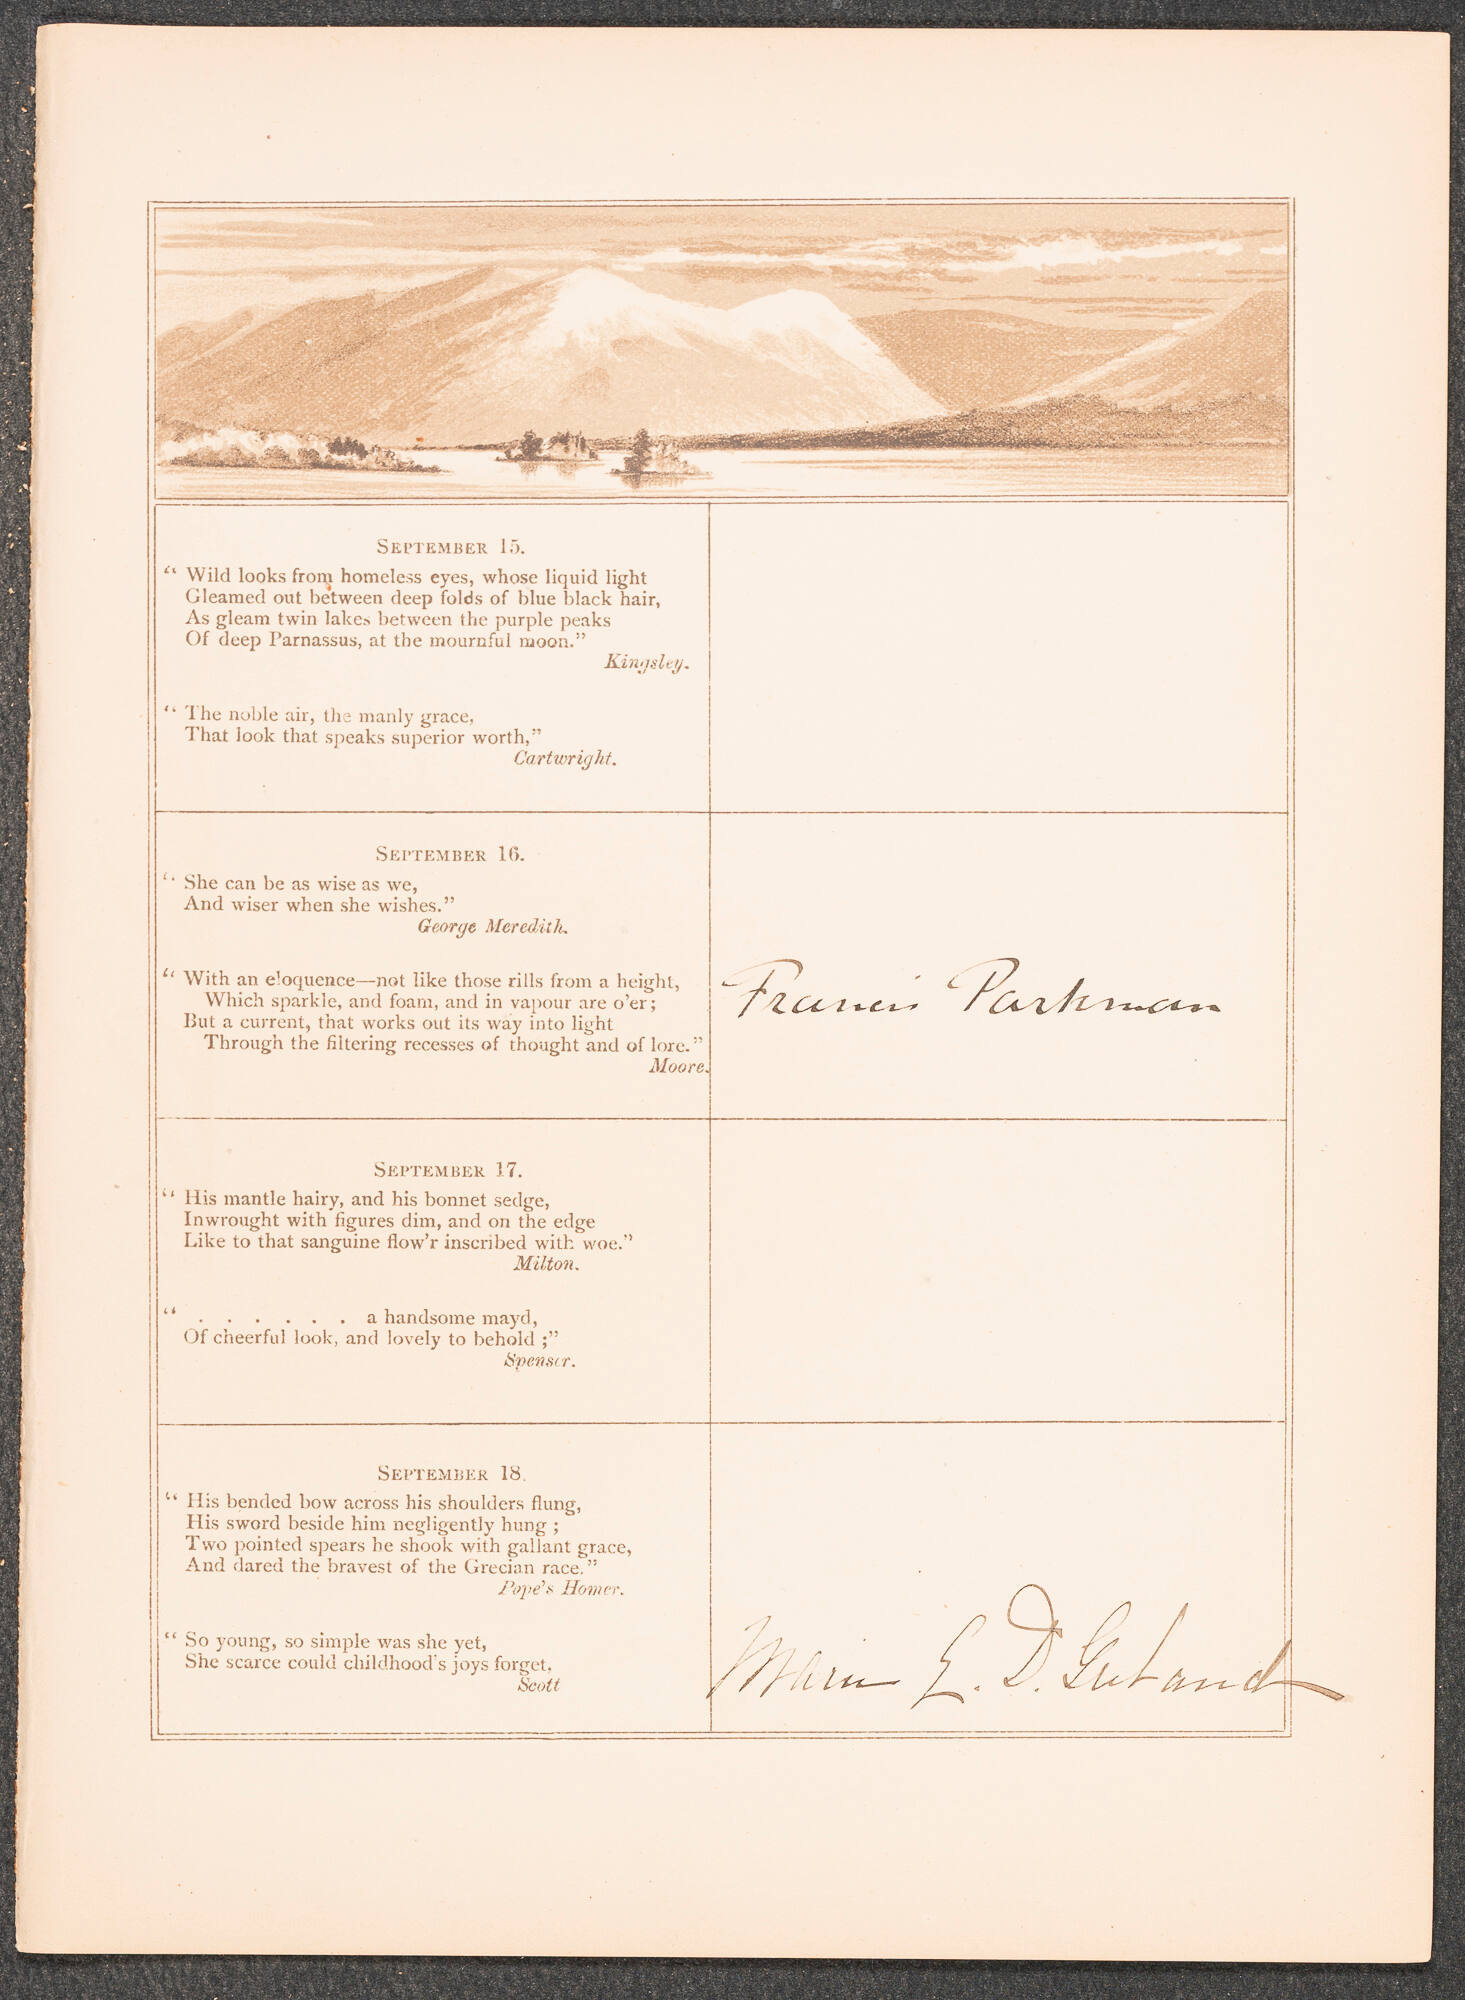 SEPTEMBER 15.
“ Wild looks from homeless eyes, whose liquid light
Gleamed out between deep folds of blue black hair,
As gleam twin lakes between the purple peaks
Of deep Parnassus, at the mournful moon.”
Kingsley.
“ The noble air, the manly grace,
That look that speaks superior worth,”
Cartwright.
SEPTEMBER 16.
“ She can be as wise as we,
And wiser when she wishes.”
George Meredith.
“ With an eloquence—not like those rills from a height,
Which sparkle, and foam, and in vapour are o’er ;
But a current, that works out its way into light
Through the filtering recesses of thought and of lore.”
Moore.
Francis Parkman
SEPTEMBER 17.
“ His mantle hairy, and his bonnet sedge,
Inwrought with figures dim, and on the edge
Like to that sanguine flow’r inscribed with woe.”
Milton.
“ . . . . . . a handsome mayd,
Of cheerful look, and lovely to behold ;”
Spenser.
SEPTEMBER 18.
“ His bended bow across his shoulders flung,
His sword beside him negligently hung ;
Two pointed spears he shook with gallant grace,
And dared the bravest of the Grecian race.”
Pope’s Homer.
“ So young, so simple was she yet,
She scarce could childhood’s joys forget,
Scott
E. D.